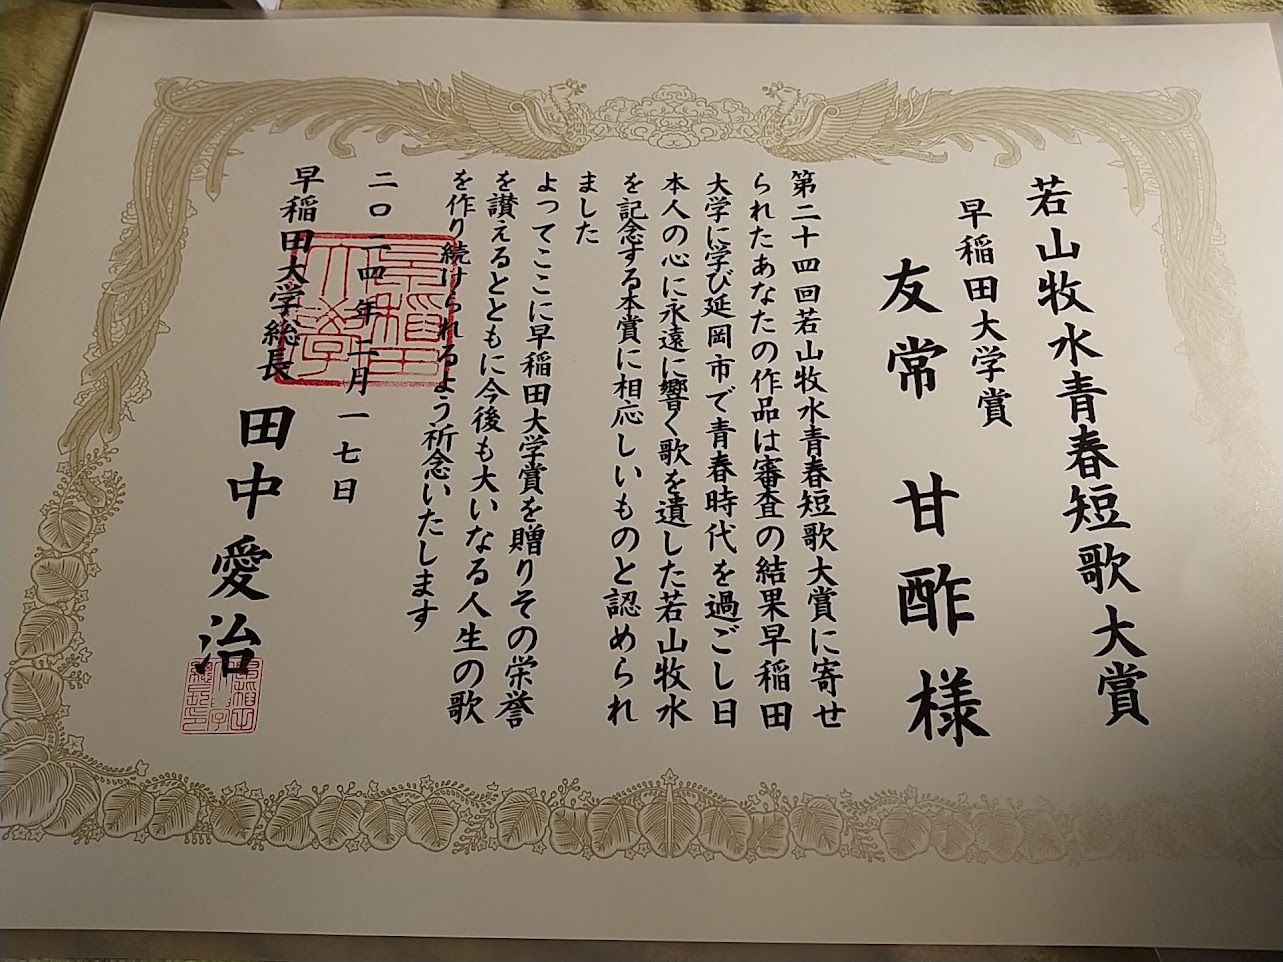 若山牧水青春短歌大賞
早稲田大学賞
友常 甘酢様
第二十四回若山牧水青春短歌大賞に寄せ
られたあなたの作品は審査の結果早稲田
大学に学び延岡市で青春時代を過ごし日
本人の心に永遠に響く歌を遺した若山牧水
を記念する本賞に相応しいものと認められ
ました
よってここに早稲田大学賞を贈りその栄誉
を讃えるとともに今後も大いなる人生の歌
を作り続けられるよう祈念いたします
二〇二四年二月一七日
早稲田大学総長 田中愛治
早稲田
大学